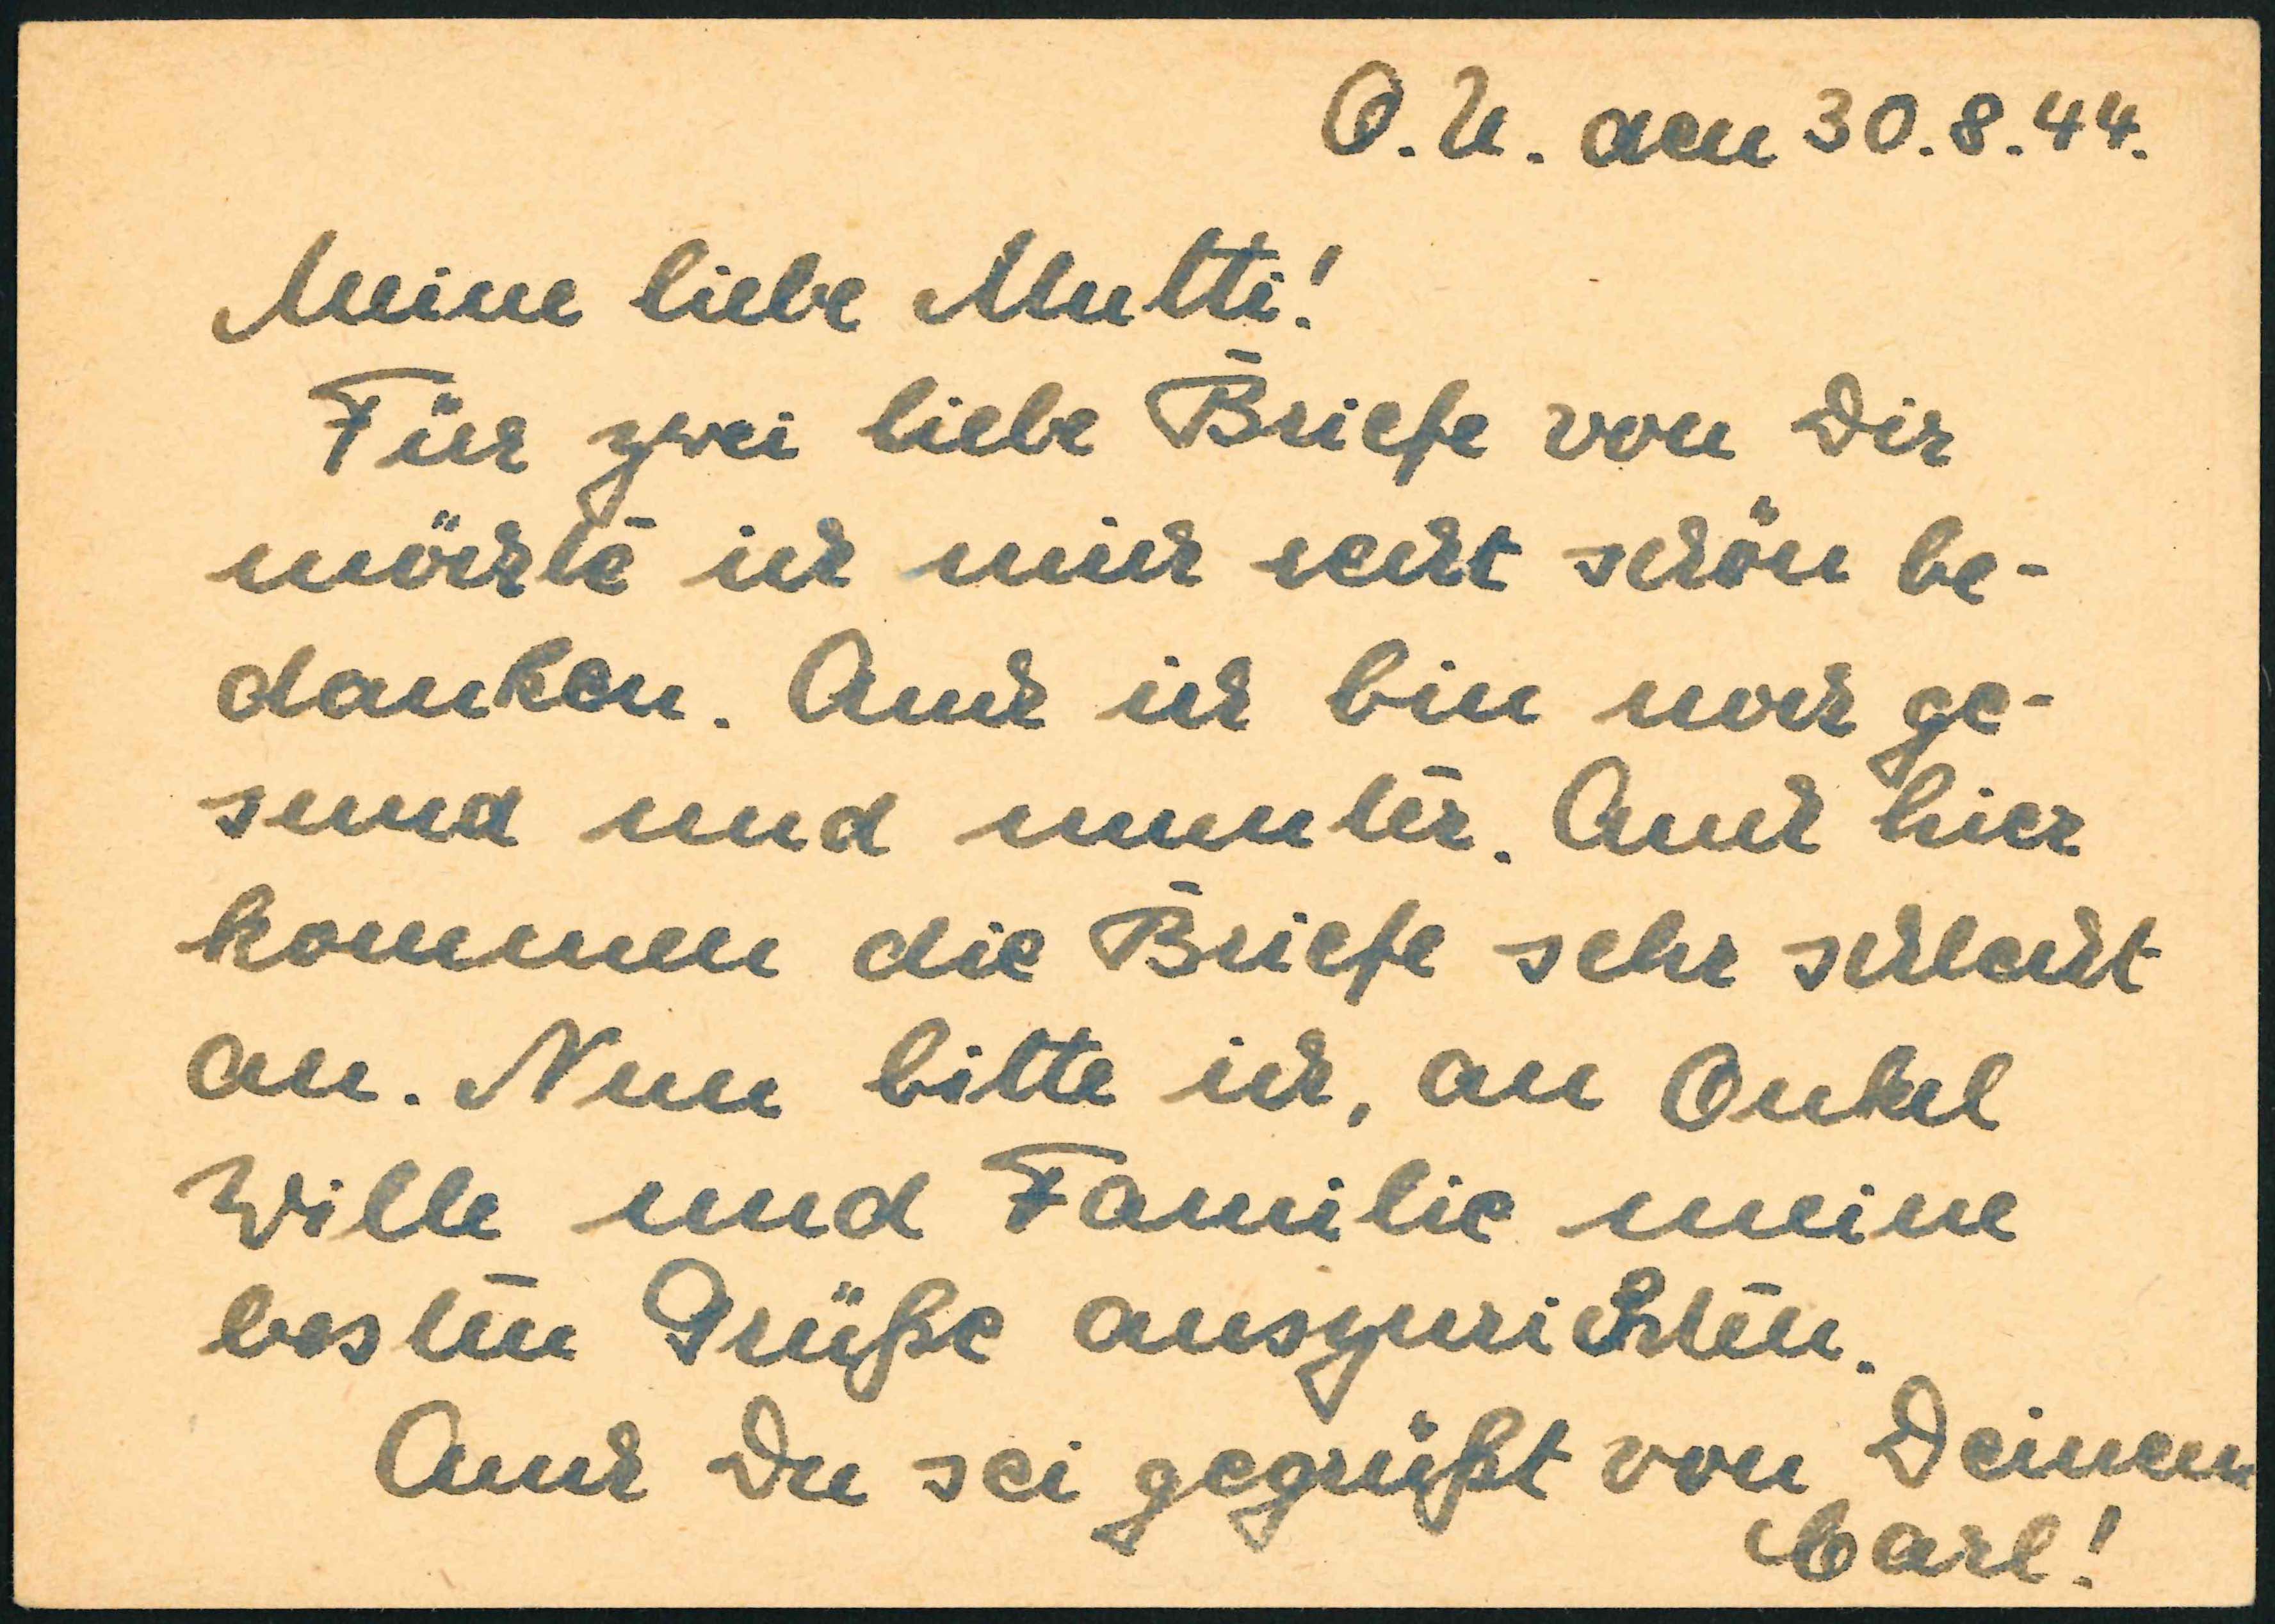 O.U. den 30.8.44.
Meine liebe Mutti!
Für zwei liebe Briefe von Dir
möchte ich mich recht schön be-
danken. Auch ich bin noch ge-
sund und munter. Auch hier
kommen die Briefe sehr schlecht
an. Nun bitte ich, an Onkel
Wille und Familie meine
besten Grüße auszurichten.
Auch Du sei gegrüßt von Deinem
Carl!